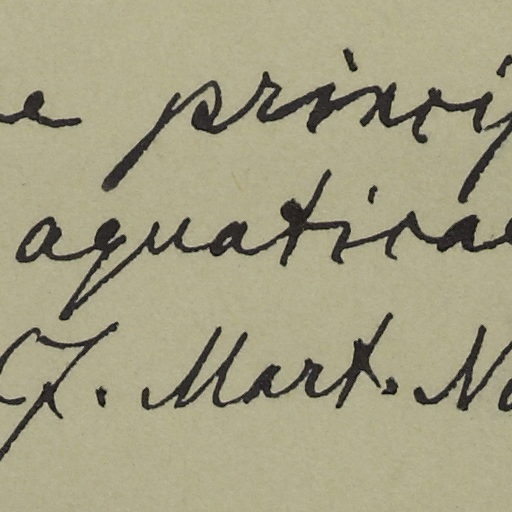 e princip
aquaticae
J. Mart. No